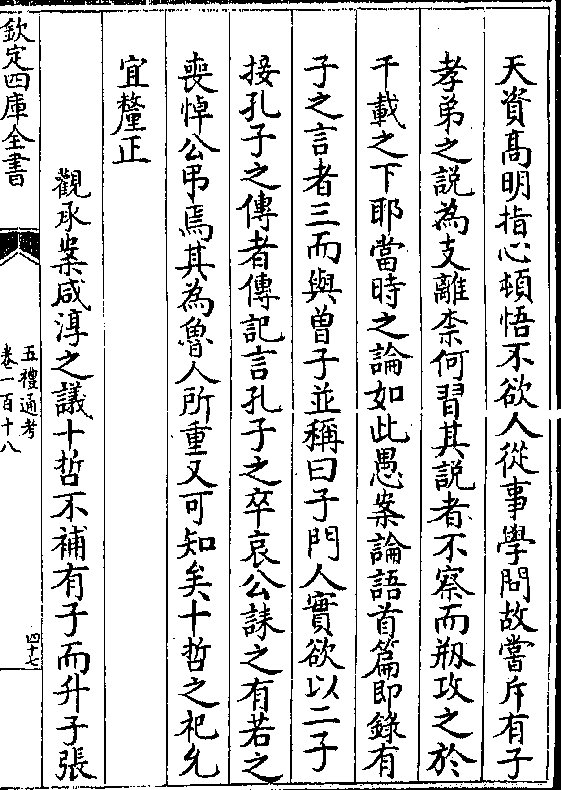 天資髙明指心頓悟不欲人從事學問故嘗斥有子
孝弟之説為支離柰何習其説者不察而剏攻之於
千載之下耶當時之論如此愚案論語首篇即錄有
子之言者三而與曽子並稱曰子門人實欲以二子
接孔子之傳者傳記言孔子之卒哀公誄之有若之
喪悼公弔焉其為魯人所重又可知矣十哲之祀允
宜釐正
觀承案咸淳之議十哲不補有子而升子張
欽定四庫全書
五禮通考
卷一百十八
四十七